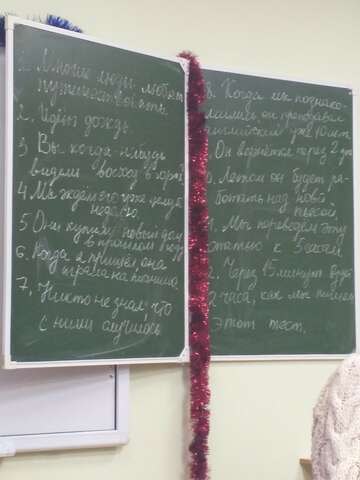 1. Многие люди любят
путешествовать
2. Идёт дождь.
3 Вы когда-нибудь
видели восход в горах
4 Мы ждём его уже целую
неделю
5 Они купили новый дом
в прошлом году
6. Когда я пришёл, она
играла на пианино
7. Никто не знал, что
с ними случилось
8. Когда мы познако-
мились он преподавал
английский уже 10 лет
Он вернётся через 2 дня
Летом он будет ра-
ботать над новой
пьесой
Мы переведём эту
статью к 5 часам
2. Через 15 минут будет
2 часа, как мы пишем
этот тест.